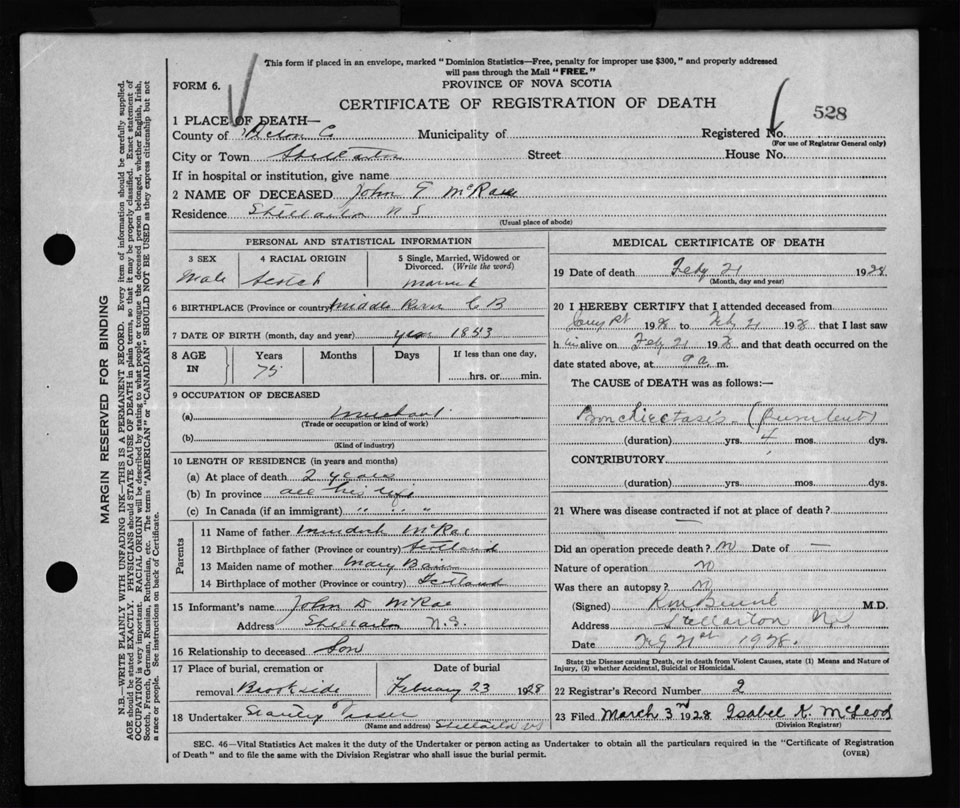 This form if placed in an envelope, marked "Dominion Statistics—Free, penalty for improper use $300," and properly addressed
will pass through the Mail "FREE."
FORM 6. PROVINCE OF NOVA SCOTIA
CERTIFICATE OF REGISTRATION OF DEATH
528
1 PLACE OF DEATH—
County of Pictou C. Municipality of Registered No.
(For use of Registrar General only)
City or Town Stellarton Street House No.
If in hospital or institution, give name
2 NAME OF DECEASED John T McRae
Residence Stellarton N S
(Usual place of abode)
PERSONAL AND STATISTICAL INFORMATION
3 SEX 4 RACIAL ORIGIN 5 Single, Married, Widowed or
Divorced. (Write the word)
Male Scotch Married
6 BIRTHPLACE (Province or country) Middle River C B
7 DATE OF BIRTH (month, day and year) year 1853
8 AGE IN Years Months Days If less than one day,
75 hrs. or min.
9 OCCUPATION OF DECEASED
(a) Merchant
(Trade or occupation or kind of work)
(b)
(Kind of industry)
10 LENGTH OF RESIDENCE (in years and months)
(a) At place of death 2 years
(b) In province all his life
(c) In Canada (if an immigrant) " " "
Parents
11 Name of father Murdoch McRae
12 Birthplace of father (Province or country) Scotland
13 Maiden name of mother Mary
14 Birthplace of mother (Province or country) Scotland
15 Informant's name John D McRae
Address Stellarton N.S.
16 Relationship to deceased Son
17 Place of burial, cremation or Date of burial
removal Brookside February 23 1928
18 Undertaker Stanley
(Name and address) Stellarton NS
MEDICAL CERTIFICATE OF DEATH
19 Date of death Feby 21 1928
(Month, day and year)
20 I HEREBY CERTIFY that I attended deceased from
1928 to Feb 21 1928 that I last saw
h im alive on Feby 21 1928 and that death occurred on the
date stated above, at 9 a. m.
The CAUSE of DEATH was as follows:—
Bronchiectasis (Purulent)
(duration) yrs. 4 mos. dys.
CONTRIBUTORY
(duration) yrs. mos. dys.
21 Where was disease contracted if not at place of death?
—
Did an operation precede death? no Date of —
Nature of operation no
Was there an autopsy? no
(Signed) M.D.
Address Stellarton NS
Date Feb 21st 1928.
State the Disease causing Death, or in death from Violent Causes, state (1) Means and Nature of
Injury, (2) whether Accidental, Suicidal or Homicidal.
22 Registrar's Record Number 2
23 Filed March 3rd 1928 Isabel K. McLeod
(Division Registrar)
SEC. 46—Vital Statistics Act makes it the duty of the Undertaker or person acting as Undertaker to obtain all the particulars required in the "Certificate of Registration
of Death" and to file the same with the Division Registrar who shall issue the burial permit. (OVER)
MARGIN RESERVED FOR BINDING
N.B.—WRITE PLAINLY WITH UNFADING INK—THIS IS A PERMANENT RECORD. Every item of information should be carefully supplied.
AGE should be stated EXACTLY. PHYSICIANS should STATE CAUSE OF DEATH in plain terms, so that it may be properly classified. Exact statement of
OCCUPATION is very important. RACIAL ORIGIN will be described by stating to what people or tongue the deceased person belonged, whether English, Irish,
Scotch, French, German, Russian, Ruthenian, etc. The terms "AMERICAN" or "CANADIAN" SHOULD NOT BE USED as they express citizenship but not
a race or people. See instructions on back of Certificate.